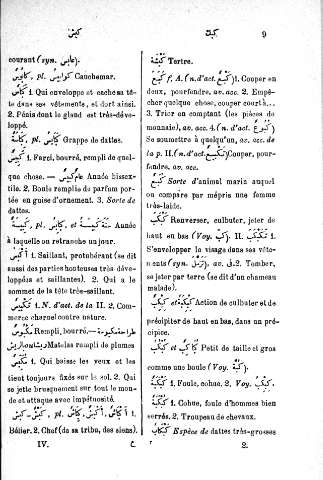 كبس
كبك
9
courant (syn. عابس).
كابوس, pl. كوابيس Cauchemar.
كباس 1. Qui enveloppe et cache sa tê-
te dans ses vêtements, et dort ainsi.
2. Pénis dont le gland est très-déve-
loppé.
كباسة, pl. كبائس Grappe de dattes.
كبيس 1. Farci, bourré, rempli de quel-
que chose. — عام كبيس Année bissex-
tile. 2. Boule remplis de parfum por-
tée en guise d'ornement. 3. Sorte de
dattes.
كبيسة, pl. كبائس, et سنة كبيسة Année
à laquelle on retranche un jour.
أكبس 1. Saillant, protubérant (se dit
aussi des parties honteuses très-déve-
loppées et saillantes). 2. Qui a le
sommet de la tête très-saillant.
تكبيس 1. N. d'act. de la II. 2. Com-
merce charnel contre nature.
مكبوس Rempli, bourré.—
Matelas rempli de plumes
مكبس 1. Qui baisse les yeux et les
tient toujours fixés sur le sol. 2. Qui
se jette brusquement sur tout le mon-
de et attaque avec impétuosité.
كبش, pl. كباش, أكبش, أكباش 1.
Bélier. 2. Chef (de sa tribu, des siens).
IV.
كبشة Tertre.
كبع f. A. (n. d'act. كبع) 1. Couper en
deux, pourfendre, av. acc. 2. Empê-
cher quelque chose, couper court à...
3. Trier en comptant (les pièces de
monnaie), av. acc. 4. (n. d'act. كبوع)
Se soumettre à quelqu'un, av. acc. de
la p. II. (n. d'act. تكبيع) Couper, pour-
fendre, av. acc.
كبع Sorte d'animal marin auquel
on compare par mépris une femme
très-laide.
كبكب Renverser, culbuter, jeter de
haut en bas (Voy. كب). II. تكبكب 1.
S'envelopper le visage dans ses vête-
ments (syn. تزمل), av. في. 2. Tomber,
se jeter par terre (se dit d'un chameau
malade).
كبكب et كبكبة Action de culbuter et de
précipiter de haut en bas, dans un pré-
cipice.
كبكب et كباكب Petit de taille et gros
comme une boule (Voy. كبة).
كبكبة 1. Foule, cohue. 2. Voy. كبكب.
كبكبة 1. Cohue, foule d'hommes bien
serrés. 2. Troupeau de chevaux.
كبكاب Espèce de dattes très-grosses
2.